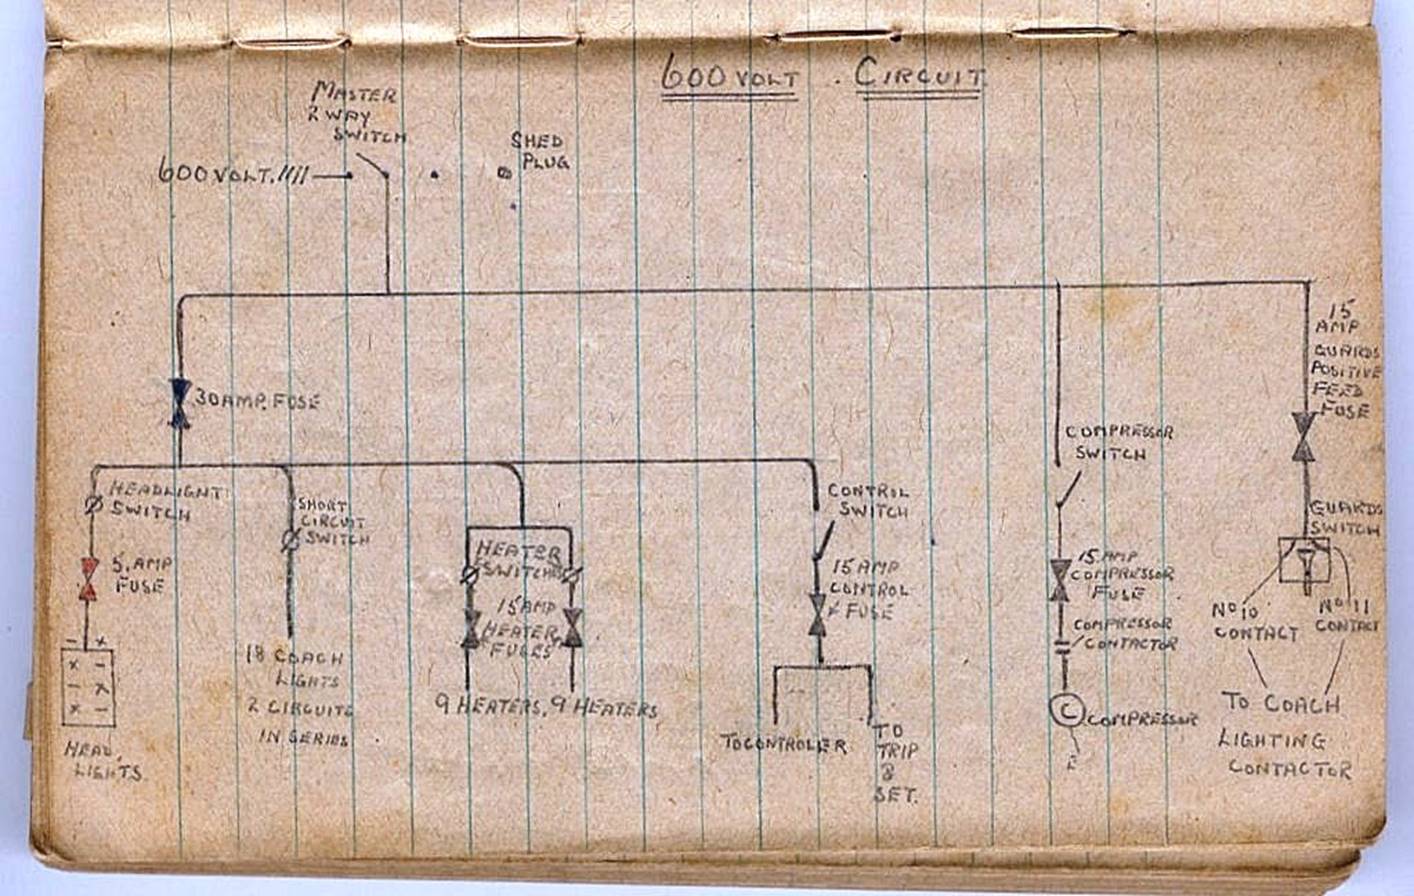 600 VOLT . CIRCUIT
MASTER
2 WAY
SWITCH
SHED
PLUG
600 VOLT.
15
AMP
GUARDS
POSITIVE
FEED
FUSE
30 AMP. FUSE
COMPRESSOR
SWITCH
HEADLIGHT
SWITCH
SHORT
CIRCUIT
SWITCH
CONTROL
SWITCH
GUARDS
SWITCH
5. AMP
FUSE
HEATER
SWITCHES
15 AMP
CONTROL
FUSE
15 AMP
COMPRESSOR
FUSE
15 AMP
HEATER
FUSES
No 10
CONTACT
No 11
CONTACT
COMPRESSOR
CONTACTOR
- +
x -
- x
x -
18 COACH
LIGHTS
2 CIRCUITS
IN SERIES
9 HEATERS. 9 HEATERS
C COMPRESSOR
E
TO COACH
LIGHTING
CONTACTOR
HEAD.
LIGHTS
TO CONTROLLER
TO
TRIP
&
SET.